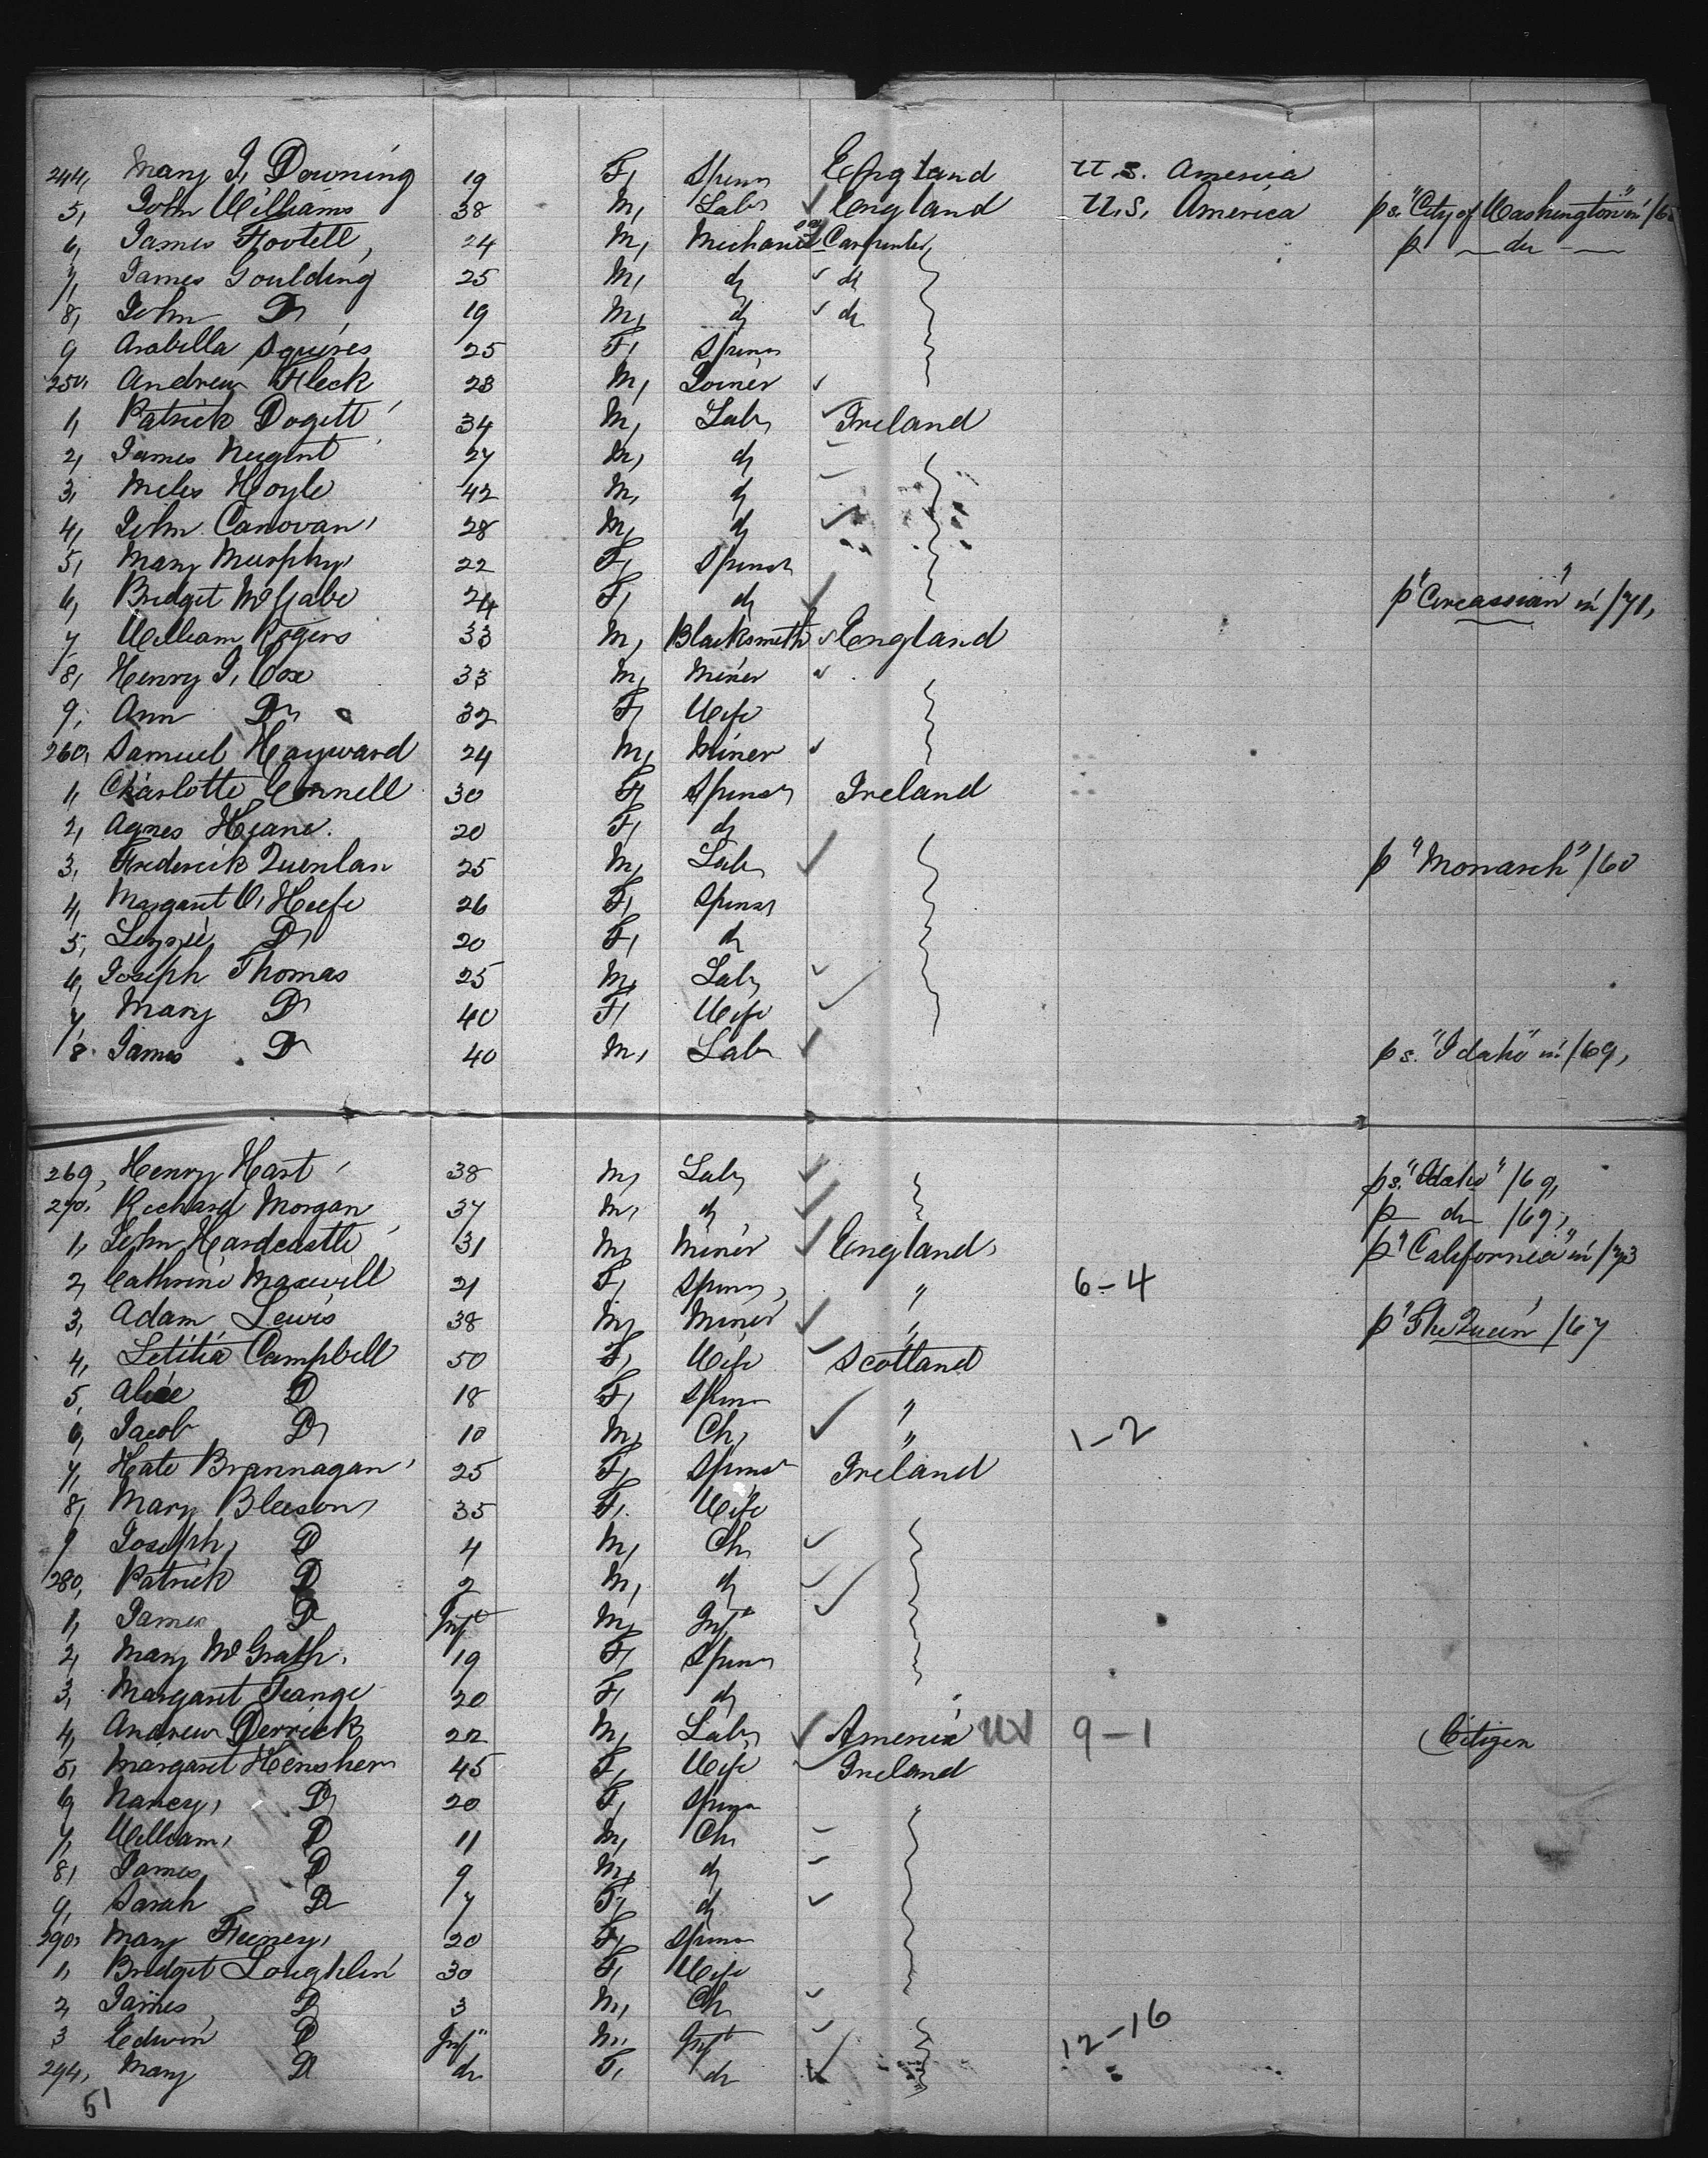 244, Mary J, Downing 19 F, Spinr England U.S. America
5, John Williams 38 M, Labr England U.S. America ps. "City of Washington" in /6
6, James Footell, 24 M, Mechanic Carpenter, p — do —
7, James Goulding 25 M, do do
8, John Do 19 M, do do
9 Arabella Squires 25 F, Spinr
250, Andrew Fleck 23 M, Joiner
1, Patrick Dogett 34 M, Labr Ireland
2, James Nugent 27 M, do
3, Miles Hoyle 42 M, do
4, John Canovan 28 M, do
5, Mary Murphy 22 F, Spinsr
6, Bridget McGabe 24 F, do p "Circassian" in /71,
7, William Rogers 33 M, Blacksmith England
8, Henry J, Cox 33 M, Miner
9, Ann Do 32 F, Wife
260, Samuel Hayward 24 M, Miner
1, Charlotte Connell 30 F, Spinsr Ireland
2, Agnes Keane. 20 F, do
3, Frederick Quenlan 25 M, Labr p "Monarch" /60
4, Margaret O'Keefe 26 F, Spinsr
5, Lizzie Do 20 F, do
6, Joseph Thomas 25 M, Labr
7, Mary Do 40 F, Wife
8. James Do 40 M, Labr ps. "Idaho" in /69,
269, Henry Hart 38 M, Labr ps. "Idaho" /69,
270, Richard Morgan 37 M, do p do /69,
1, John Hardcastle 31 M, Miner England, p "California" in /73
2, Cathrine Maxwill 21 F, Spinr, " 6-4
3, Adam Lewis 38 M, Miner " p "The Queen /67
4, Letitia Campbell 50 F, Wife Scotland
5, Alice D 18 F, Spinr "
6, Jacob Do 10 M, Ch, " 1-2
7, Kate Brannagan 25 F, Spinsr Ireland
8, Mary Bleeson 35 F, Wife
9 Joseph, D 4 M, Ch,
280, Patrick D 2 M, do
1, James D Inft M, Inft
2, Mary McGrath, 19 F, Spinr
3, Margaret Teange 20 F, do
4, Andrew Derrick 22 M, Labr America 9-1 Citizen
5, Margaret Hensher 45 F, Wife Ireland
6 Nancy, Do 20 F, Spinr
7, William, D 11 M, Ch,
8, James, D 9 M, do
9, Sarah Do 7 F, do
290, Mary Feeney, 20 F, Spinr
1, Bridget Loughlin 30 F, Wife
2, James, D 3 M, Ch,
3 Edwin D Inft M, Inft 12-16
294, Mary D do F, do
51